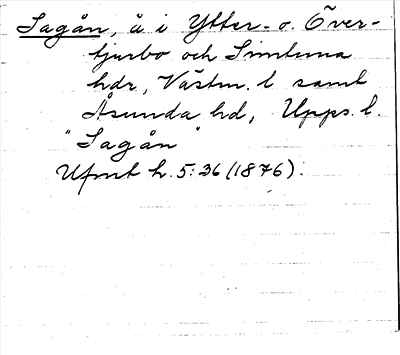 Sagån, å i Ytter- o. Över-
tjurbo och Simtuna
hdr, Västm. l samt
Åsunda hd, Upps. l.
"Sagån"
Ufmt h. 5: 36 (1876).